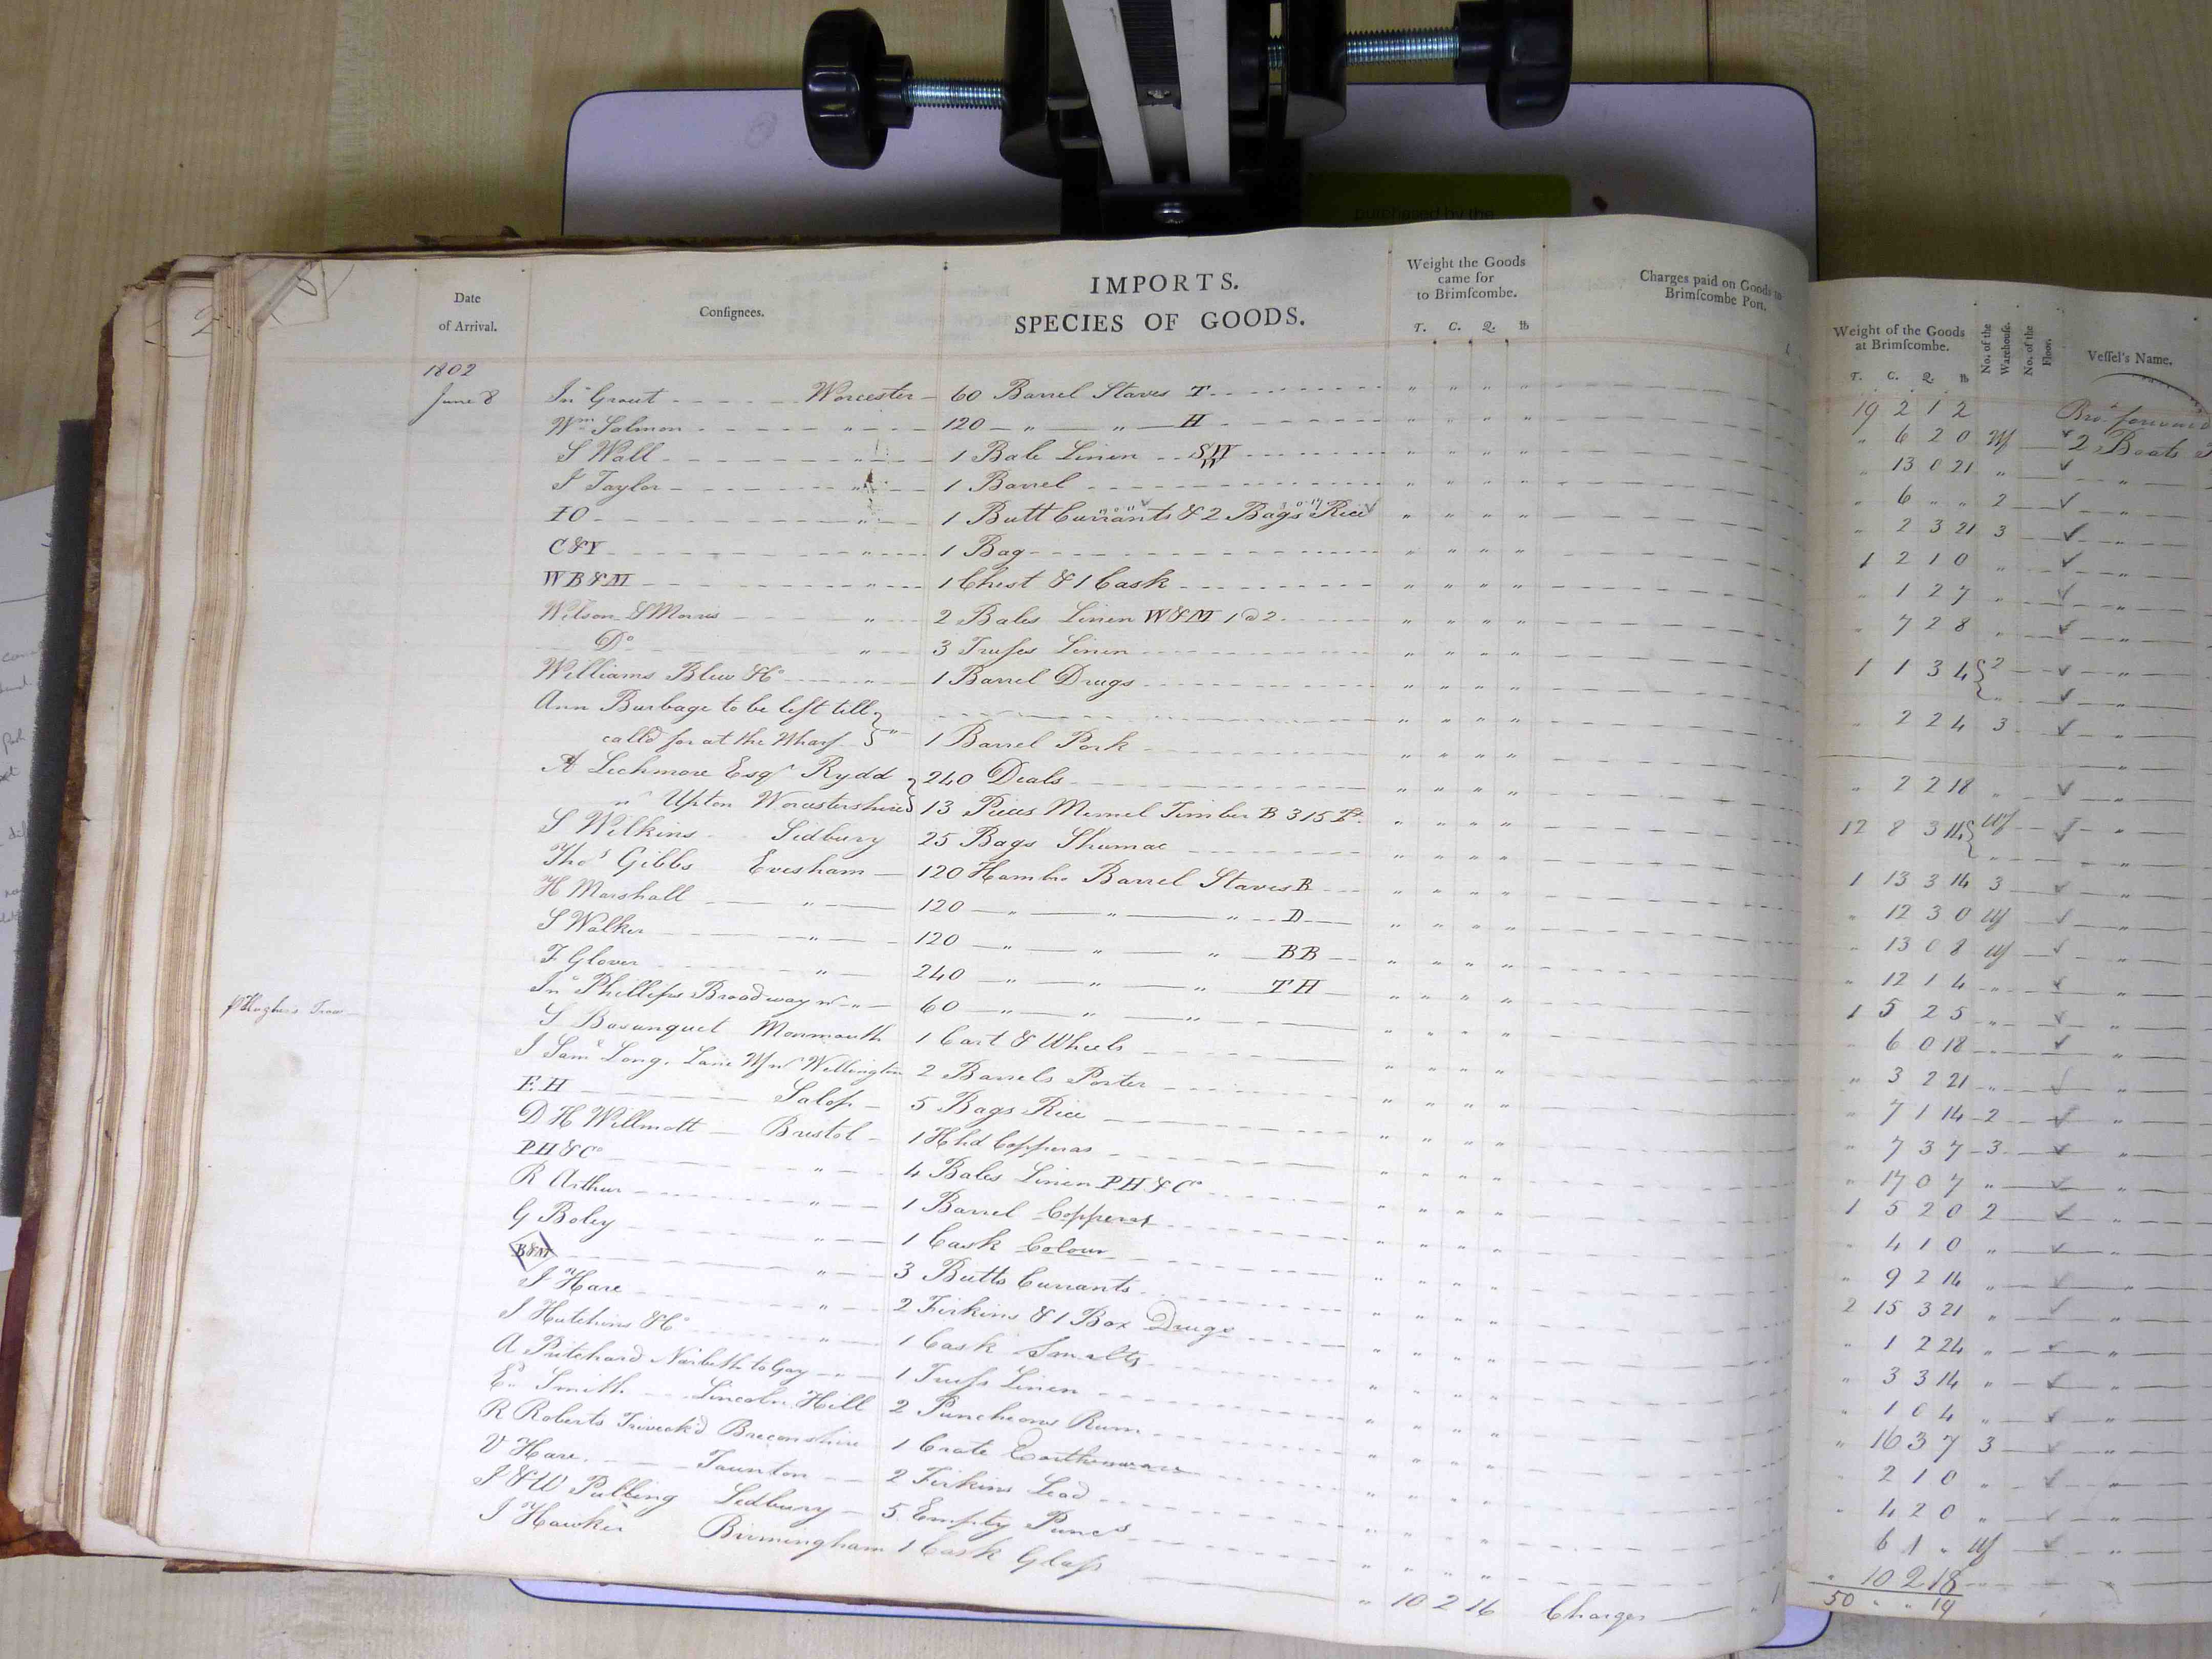 purchased by the
Date
of Arrival.
Consignees.
IMPORTS.
SPECIES OF GOODS.
Weight the Goods
came for
to Brimscombe.
T. C. Q. lb
Charges paid on Goods to
Brimscombe Port.
Weight of the Goods
at Brimscombe.
T. C. Q. lb
No. of the
Warehouse.
No. of the
Floor.
Vessel's Name.
1802
19 2 1 2 Bro.t forward
June 8 Jno Grout Worcester 60 Barrel Staves T " 6 2 0 Wf 2 Boats
Wm Salmon " 120 " " H " 13 0 21 "
S Wall " 1 Bale Linen SW " 6 " " 2 "
J Taylor " 1 Barrel " 2 3 21 3 "
IO " 1 Butt Currants & 2 Bags Rice 1 2 1 0 " "
C&Y " 1 Bag " 1 2 7 " "
WB&M " 1 Chest & 1 Cask " 7 2 8 " "
Wilson & Morris " 2 Bales Linen W&M 1 @ 2 1 1 3 4 2 "
Do " 3 Trusses Linen " "
Williams Blew & Co " 1 Barrel Drugs " 2 2 4 3 "
Ann Burbage to be left till
calld for at the Wharf " 1 Barrel Pork " 2 2 18 " "
A Lechmore Esqr Rydd 240 Deals 12 8 3 14 Wf "
nr Upton Worcestershire 13 Pieces Memel Timber B 315 Ft. " "
S Wilkins Ledbury 25 Bags Shumac 1 13 3 14 3 "
Thos Gibbs Evesham 120 Hambro Barrel Staves B " 12 3 0 Wf "
H Marshall " 120 " " " D " 13 0 8 Wf "
S Walker " 120 " " " BB " 12 1 4 " "
F Glover " 240 " " " TH 1 5 2 5 " "
Jno Phillips Broadway nr " 60 " " " " 6 0 18 "
P Hughes Trow S Bosanquet Monmouth 1 Cart & Wheels " 3 2 21 " "
J Saml Long, Lane Wf nr Wellington 2 Barrels Porter " 7 1 14 2 "
EH Salop 5 Bags Rice " 7 3 7 3 "
D H Willmott Bristol 1 Hhd Copperas " 17 0 7 " "
PH&Co " 4 Bales Linen PH&Co 1 5 2 0 2 "
R Arthur " 1 Barrel Copperas " 4 1 0 " "
G Boley " 1 Cask Colour " 9 2 14 " "
B&M " 3 Butts Currants 2 15 3 21 " "
J Hare " 2 Firkins & 1 Box Drugs " 1 2 24 " "
J Hutchins & Co " 1 Cask Smalts " 3 3 14 " "
A Pritchard Narbeth to Gay " 1 Truss Linen " 1 0 4 " "
Ed Smith Lincoln Hill 2 Puncheons Rum " 16 3 7 3 "
R Roberts Breconshire 1 Crate Earthenware " 2 1 0 " "
V Hare Taunton 2 Firkins Lead " 4 2 0 " "
J & W Pulling Ledbury 5 Empty Puncs 6 1 " Wf "
J Hawker Birmingham 1 Cask Glass " 10 2 16 Charges " 10 2 18
50 " " 14